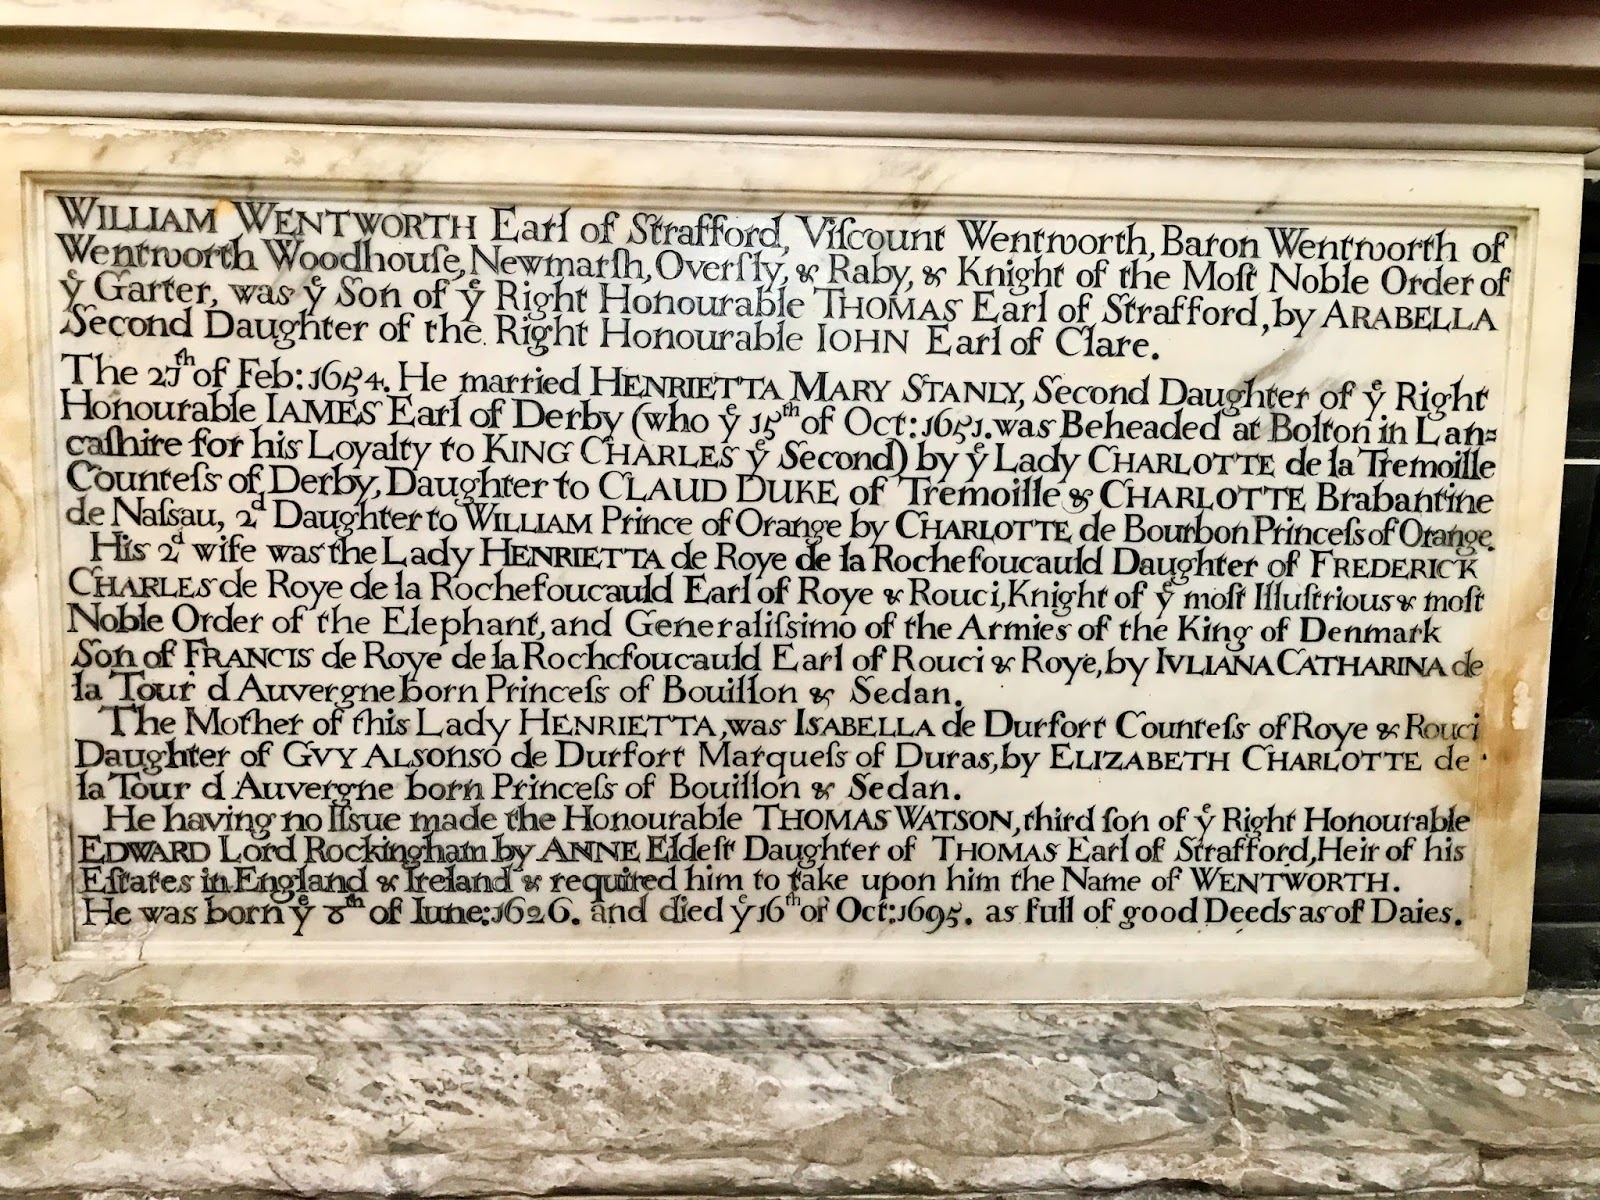 WILLIAM WENTWORTH Earl of Strafford, Viſcount Wentworth, Baron Wentworth of
Wentworth Woodhouſe, Newmarſh, Overſly, & Raby, & Knight of the Moſt Noble Order of
yͤ Garter, was yͤ Son of yͤ Right Honourable THOMAS Earl of Strafford, by ARABELLA
Second Daughter of the Right Honourable IOHN Earl of Clare.
The 27th of Feb: 1654. He married HENRIETTA MARY STANLY, Second Daughter of yͤ Right
Honourable IAMES Earl of Derby (who yͤ 15th of Oct: 1651. was Beheaded at Bolton in Lan=
caſhire for his Loyalty to KING CHARLES yͤ Second) by yͤ Lady CHARLOTTE de la Tremoille
Counteſs of Derby, Daughter to CLAUD DUKE of Tremoille & CHARLOTTE Brabantine
de Naſsau, 2d Daughter to WILLIAM Prince of Orange by CHARLOTTE de Bourbon Princeſs of Orange.
His 2d wife was the Lady HENRIETTA de Roye de la Rochefoucauld Daughter of FREDERICK
CHARLES de Roye de la Rochefoucauld Earl of Roye & Rouci, Knight of yͤ moſt Illuſtrious & moſt
Noble Order of the Elephant, and Generaliſsimo of the Armies of the King of Denmark
Son of FRANCIS de Roye de la Rochefoucauld Earl of Rouci & Roye, by IVLIANA CATHARINA de
la Tour d Auvergne born Princeſs of Bouillon & Sedan.
The Mother of this Lady HENRIETTA, was ISABELLA de Durfort Counteſs of Roye & Rouci
Daughter of GVY ALSONSO de Durfort Marqueſs of Duras, by ELIZABETH CHARLOTTE de
la Tour d Auvergne born Princeſs of Bouillon & Sedan.
He having no Iſsue made the Honourable THOMAS WATSON, third ſon of yͤ Right Honourable
EDWARD Lord Rockingham by ANNE Eldeſt Daughter of THOMAS Earl of Strafford, Heir of his
Eſtates in England & Ireland & required him to take upon him the Name of WENTWORTH.
He was born yͤ 8th of Iune: 1626. and died yͤ 16th of Oct: 1695. as full of good Deeds as of Daies.